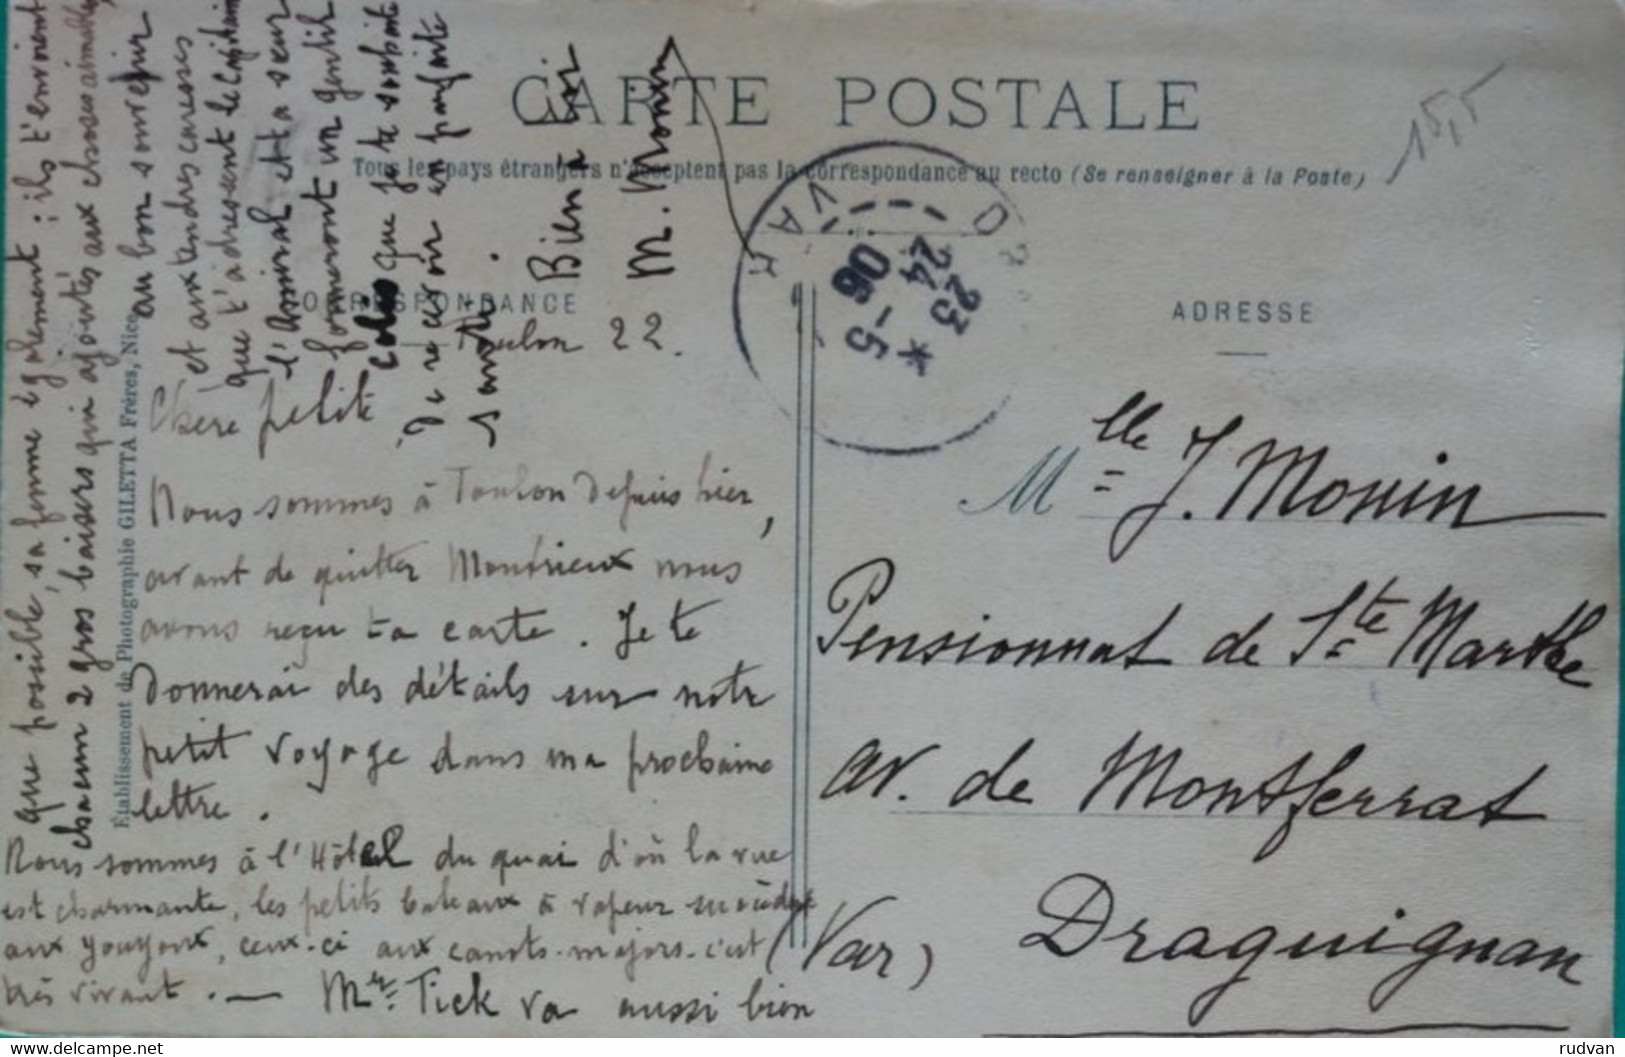 CARTE POSTALE
Tous les pays étrangers n'acceptent pas la correspondance au recto (Se renseigner à la Poste)
15,5
CORRESPONDANCE
ADRESSE
VAR
23
24
5
06
Toulon 22.
Chère petite
Nous sommes à Toulon depuis hier,
avant de quitter Montrieux nous
avons reçu ta carte. Je te
donnerai des détails sur notre
petit voyage dans ma prochaine
lettre.
Nous sommes à l'Hôtel du quai d'où la vue
est charmante, les petits bateaux à vapeur succèdent
aux youyoux, ceux-ci aux canots-majors-c'est
très vivant. — Mr Tick va aussi bien
que possible, sa femme également: ils t'envoient
chacun 2 gros baisers qui ajoutés aux choses aimables,
au bon souvenir
et aux tendres caresses
que t'adressent le Capitaine
l'Amiral et ta sœur
formeront un gentil
colis que je te souhaite
de recevoir en parfaite
santé.
Bien à toi
M. Monin
Mlle J. Monin
Pensionnat de Ste Marthe
av. de Montferrat
Draguignan
(Var)
Établissement de Photographie GILETTA Frères, Nice
rudvan